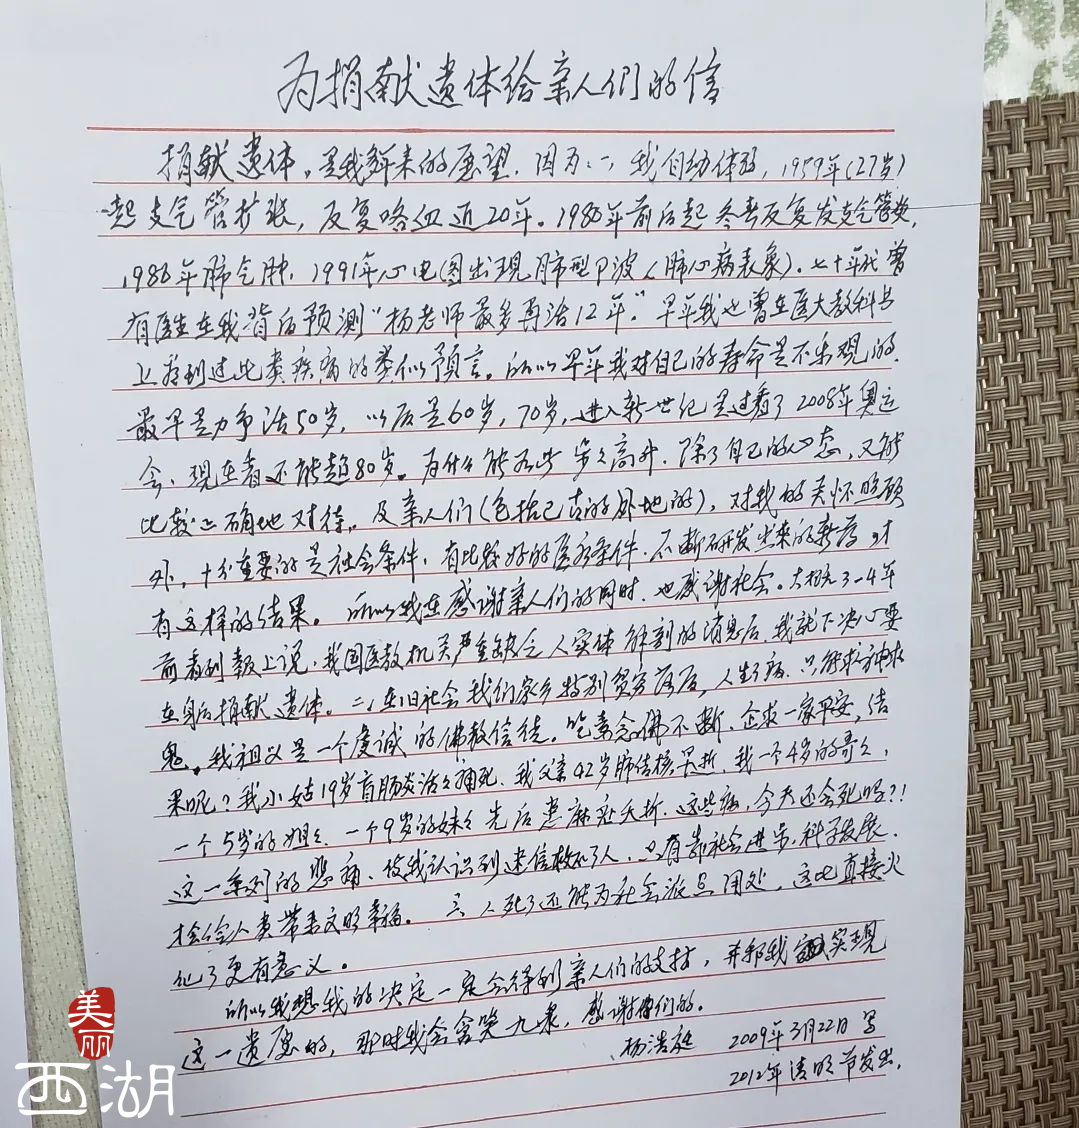 为捐献遗体给亲人们的信
捐献遗体,是我多年来的愿望,因为:一、我自幼体弱,1959年(27岁)
起支气管扩张,反复咯血近20年。1980年前后起冬季反复发支气管炎,
1986年肺气肿,1991年心电图出现肺型P波(肺心病表象)。七十年代曾
有医生在我背后预测“杨老师最多再活12年。”早年我也曾在医大教科书
上看到过此类疾病的类似预言。所以早年我对自己的寿命是不乐观的。
最早是力争活50岁,以后是60岁,70岁,进入新世纪是过看了2008年奥运
会,现在看还能超80岁。为什么能如此步步高升,除了自己的心态,又能
比较正确地对待,及亲人们(包括已古的外地的),对我的关怀照顾
外,十分重要的是社会条件,有比较好的医疗条件,不断研发出来的新药,才
有这样的结果。所以我在感谢亲人们的同时,也感谢社会。大概3-4年
前看到报上说,我国医教机关严重缺乏人实体解剖的消息后,我就下决心要
在身后捐献遗体。二、在旧社会我们家乡特别贫穷落后,人生了病,只能求神求
鬼。我祖父是一个虔诚的佛教信徒。吃素念佛不断,企求一家平安,结
果呢?我小姑19岁盲肠炎活活痛死,我父亲42岁肺结核早逝,我一个4岁的哥哥,
一个5岁的姐姐,一个9岁的妹妹先后患麻疹夭折,这些病,今天还会死吗?!
这一系列的悲痛,使我认识到迷信救不了人,只有靠社会进步,科学发展,
才会给人类带来文明幸福。三、人死了还能为社会派点用处,这比直接火
化了更有意义。
所以我想我的决定一定会得到亲人们的支持,并帮我实现
这一遗愿的,那时我会含笑九泉,感谢你们的。
杨浩延 2009年3月22日写
2012年清明节发出。
美丽
西湖